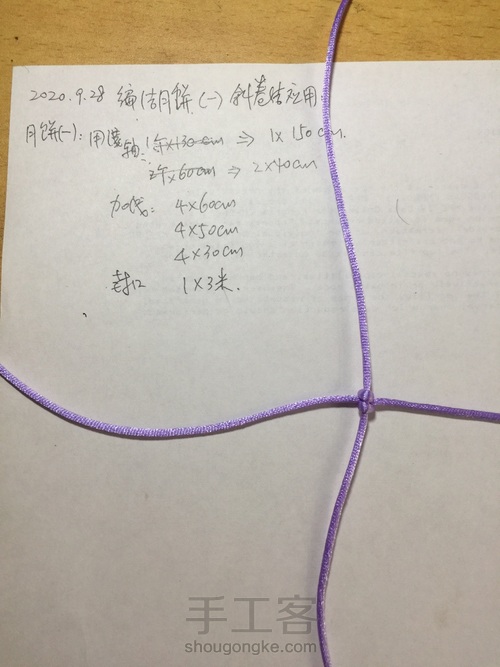 2020.9.28 编结月饼(一) 斜卷结应用:
月饼(一): 用线 轴: 1×130cm ⇒ 1×150cm.
2×60cm ⇒ 2×40cm
加线: 4×60cm
4×50cm
4×30cm
封口 1×3米.
手工客
shougongke.com